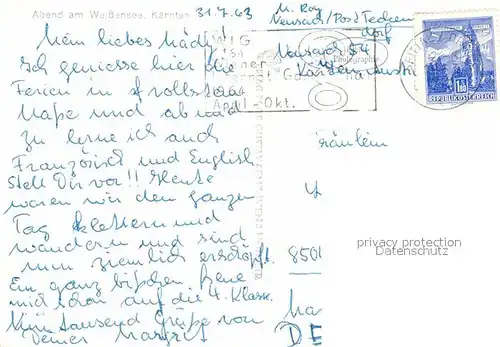 Abend am Weißensee, Kärnten
31.7.63
M. Roy
Neusach/Post Techen
dorf
Neusach 54
Kärnten
Mein liebes Mädy!
Ich geniesse hier die
Ferien in vollstem
Maße und ab und
zu lerne ich auch
Französisch und English
stell Dir vor!! Heute
waren wir den ganzen
Tag klettern und
wandern und sind
nun ziemlich erschöpft.
Ein ganz bißchen freue
mich schon auf die 4. Klasse.
Nun tausend Grüße von
Deiner Margrit
WIG
April - Okt.
1.50
REPUBLIK ÖSTERREICH
Fräulein
850
privacy protection
Datenschutz